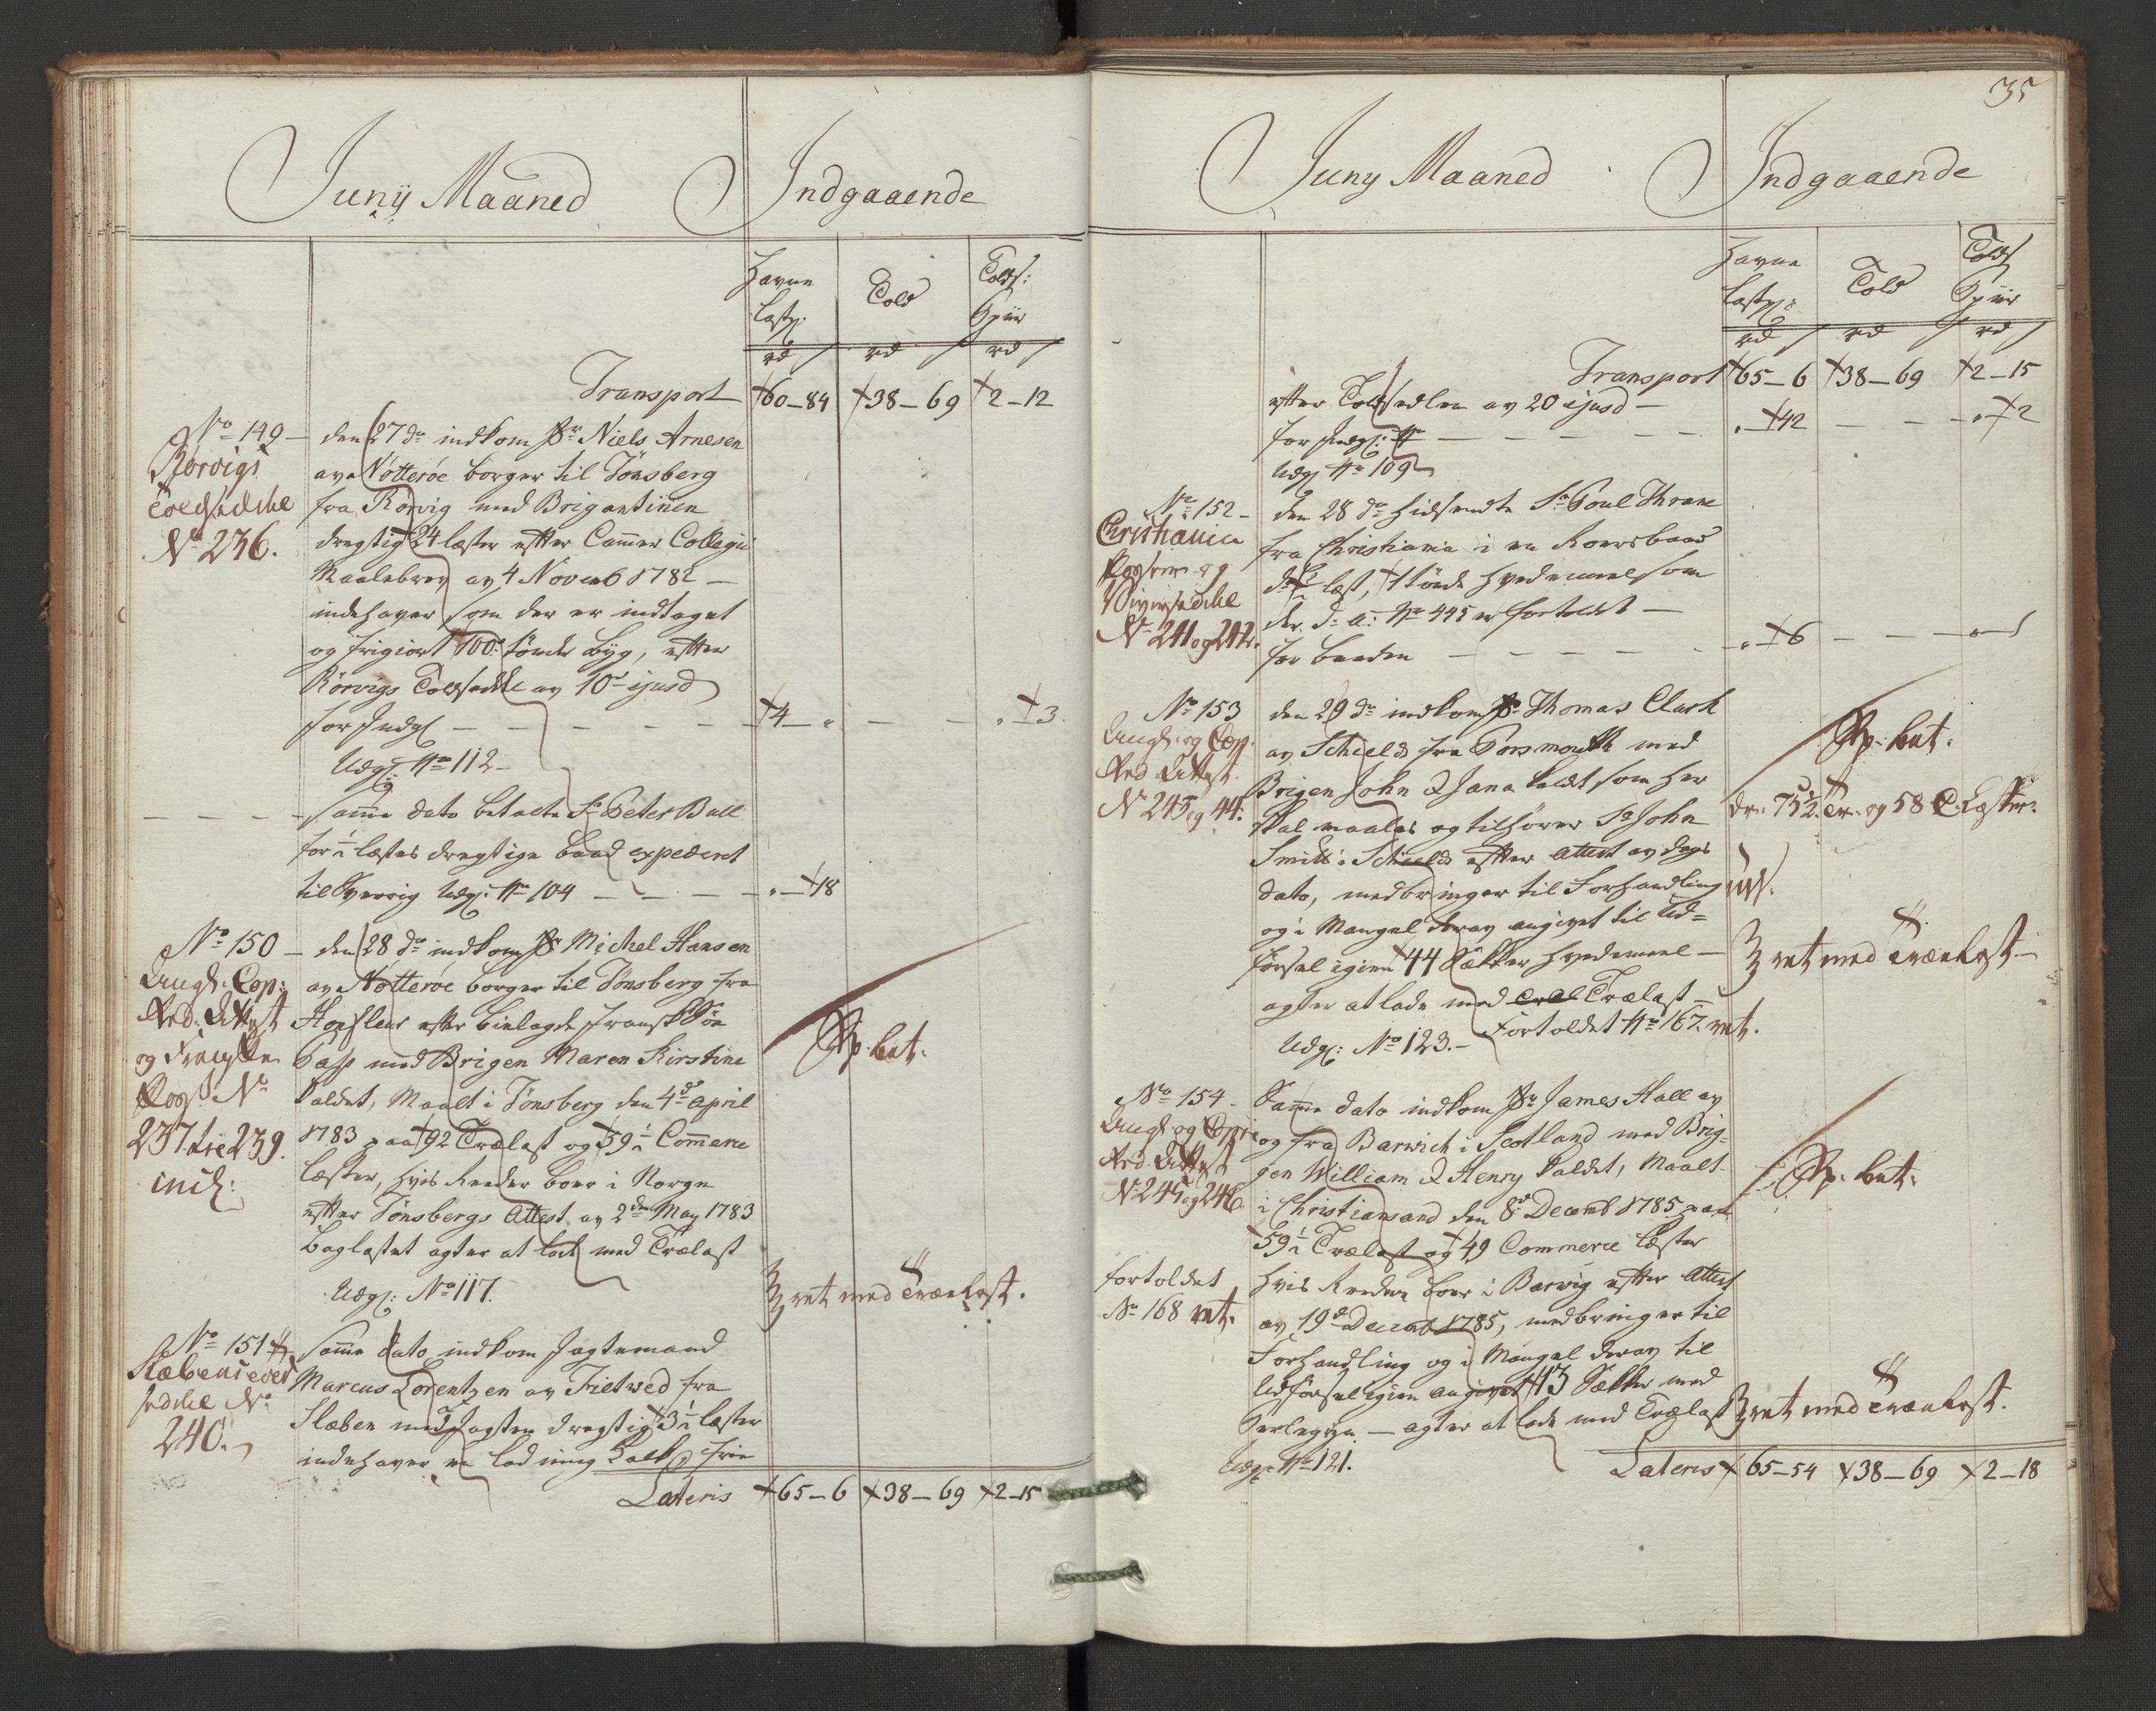 Junij Maaned Indgaaende
Havne
Lastp:
Told
Tolds:
Spiir
rd s rd s rd s
Transport 60-84 38-69 2-12
No 149
Rörvigs
Toldseddel
No 236.
den 27 do indkom Skr Niels Arnesen
ava Nötteröe borger til Tönsberg
fra Rörvig med Brigantinen
drægtig 24 læster efter Cammer Collegii
Maalebrev av 4 Novemb 1782
indehaver som der er indtaget
og frigiort 100 tönder byg, efter
Rörvigs Toldseddel av 10de ejusd
for Indg 4 - - 3.
Udg: No 112
samme dato betalte Sr Peter Bull
for 1 læstes drægtige baad expederet
til Sverrig Udg: No 104 - 18
No 150
Engl: Cop:
Red: Attest
og Fragtte
Pass No
237 til 239.
incl:
den 28 do indkom Skr Michel Hansen
av Nötteröe borger til Tönsberg fra
Honfleur efter bielagde fransk Söe
Pass med Brigen Maren Kirstine
kaldet, Maalt i Tönsberg den 4de April
1783 paa 92 Trælast og 59½ Commerce
læster, hvis Reeder boer i Norge
efter Tönsbergs Attest av 2den May 1783
baglastet agter at lade med Trælast
Udg: No 117.
Sp. bet.
ret med Trælast.
No 151
Slæbens
seddel No
240.
samme dato indkom Jagtemand
Marcus Lorentzen av Trietwed fra
Slæben med Jagten drægtig 3½ læster
indehaver en ladning Kalk, frie
Lateris 65-6 38-69 2-15
35
Juny Maaned Indgaaende
Havne
Lastp:
Told
Tolds
Spiir
rd s rd s rd s
Transport 65-6 38-69 2-15
efter Toldsedlen av 20 ejusd
for Indg: 42 - - 2
Udg No 109
No 152
Christiania
Passeer og
seddel
No 241 og 242.
den 28 do hidsendte Sr Poul Thrane
fra Christiania i en Roersbaad
læst, 1 tönde hvedemeel som
der d: a: No 445 er fortoldet
for baaden 6
No 153
Engl: og Cop.
Red Attest
No 243 og 44.
den 29 do indkom Skr Thomas Clark
av Schields fra Porsmouth med
Brigen John & Jana kaldet som her
skal maales og tilhörer Sr John
Smith i Schields efter Attest av dags
dato, medbringer til Forhandling
og i Mangel derav angivet til Ud=
försel igien 44 Sækker hvedemeel
agter at lade med Trælast
Fortoldet No 167. ret.
Udg: No 123.
Sp. bet.
dr. 75½ Tr. og 58 C. Læster.
ret med Trælast.
No 154
Engl og
Red Attest
No 245 og 246
fortoldet
No 168 ret.
Samme dato indkom Skr James Hall av
og fra Barwich i Scotland med Brig=
gen William & Henry kaldet, Maalt
i Christiansand den 8de Decemb 1785 paa
59½ Trælast og 49 Commerce læster
hvis Reeder boer i Barwig efter Attest
av 19de Decemb 1785, medbringer til
Forhandling og i Mangel derav til
Udförsel igien angivet 13 Sækker med
Perlegryn. agter at lade med Trælast
Udg: No 121.
Sp. bet.
ret med Trælast.
Lateris 65-54 38-69 2-18